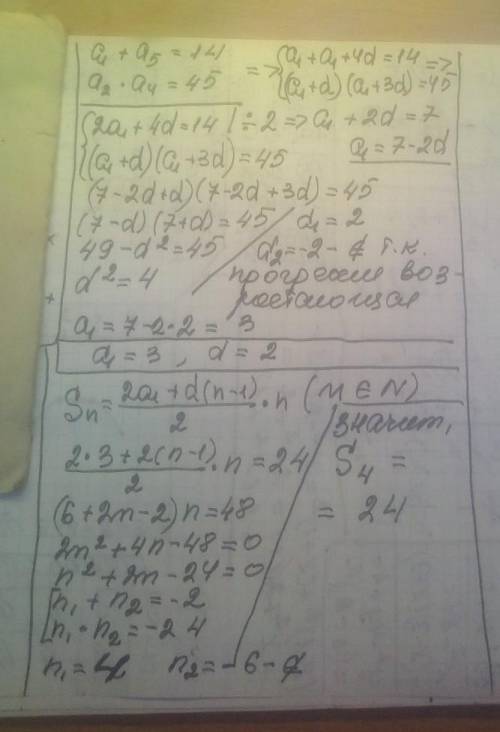 a₁ + a₅ = 14
a₂ · a₄ = 45
=> {a₁ + a₁ + 4d = 14 =>
{(a₁+d)(a₁+3d) = 45
{2a₁ + 4d = 14 | ÷ 2 => a₁ + 2d = 7
{(a₁+d)(a₁+3d) = 45
a₁ = 7 - 2d
(7-2d+d)(7-2d+3d) = 45
(7-d)(7+d) = 45
49 - d² = 45
d² = 4
d₁ = 2
d₂ = -2 - ∉ т.к.
прогрессия воз-
растающая
a₁ = 7 - 2·2 = 3
a₁ = 3, d = 2
Sₙ = (2a₁ + d(n-1))/2 · n (n ∈ N)
(2·3 + 2(n-1))/2 · n = 24
(6 + 2n - 2) n = 48
2n² + 4n - 48 = 0
n² + 2n - 24 = 0
[n₁ + n₂ = -2
[n₁ · n₂ = -24
n₁ = 4 n₂ = -6 - ∉
Значит,
S₄ =
= 24